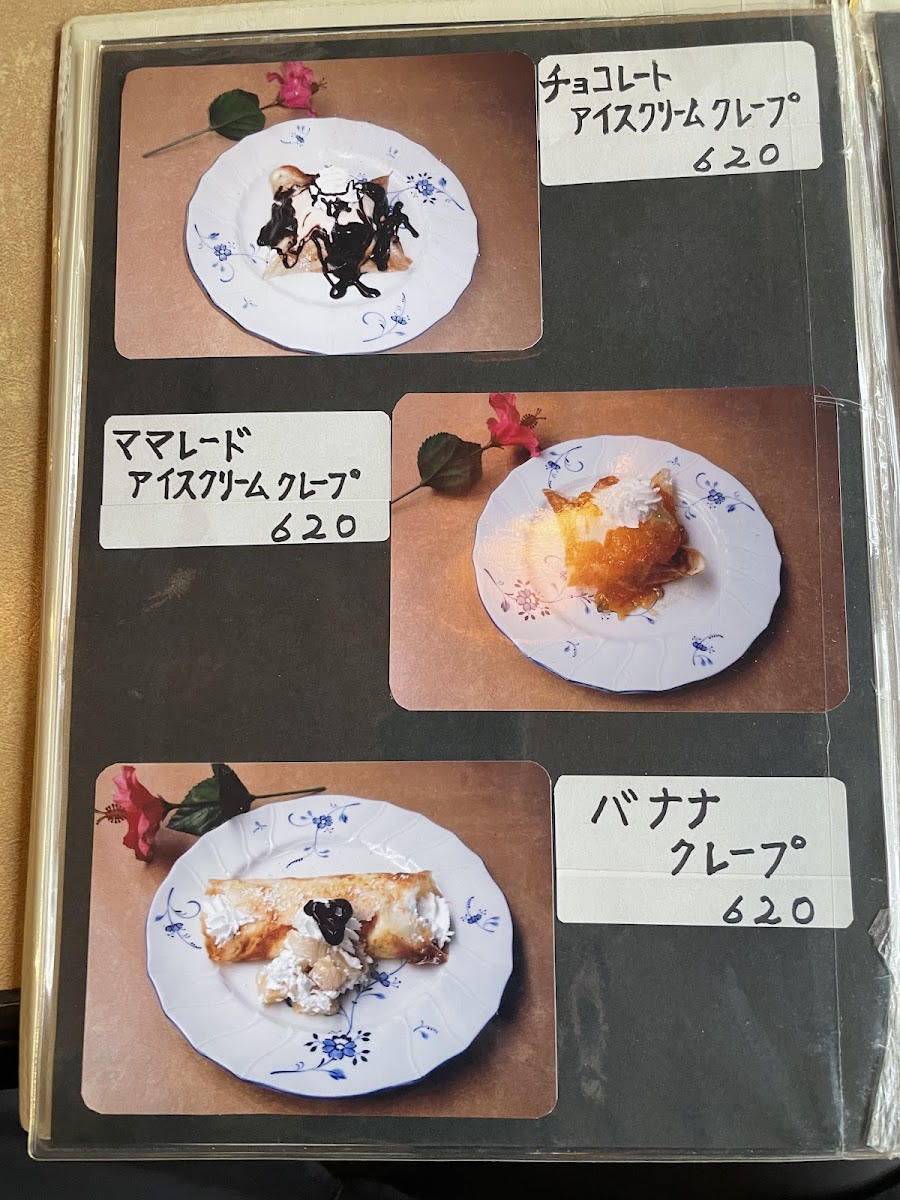 チョコレート
アイスクリーム クレープ
620
ママレード
アイスクリーム クレープ
620
バナナ
クレープ
620